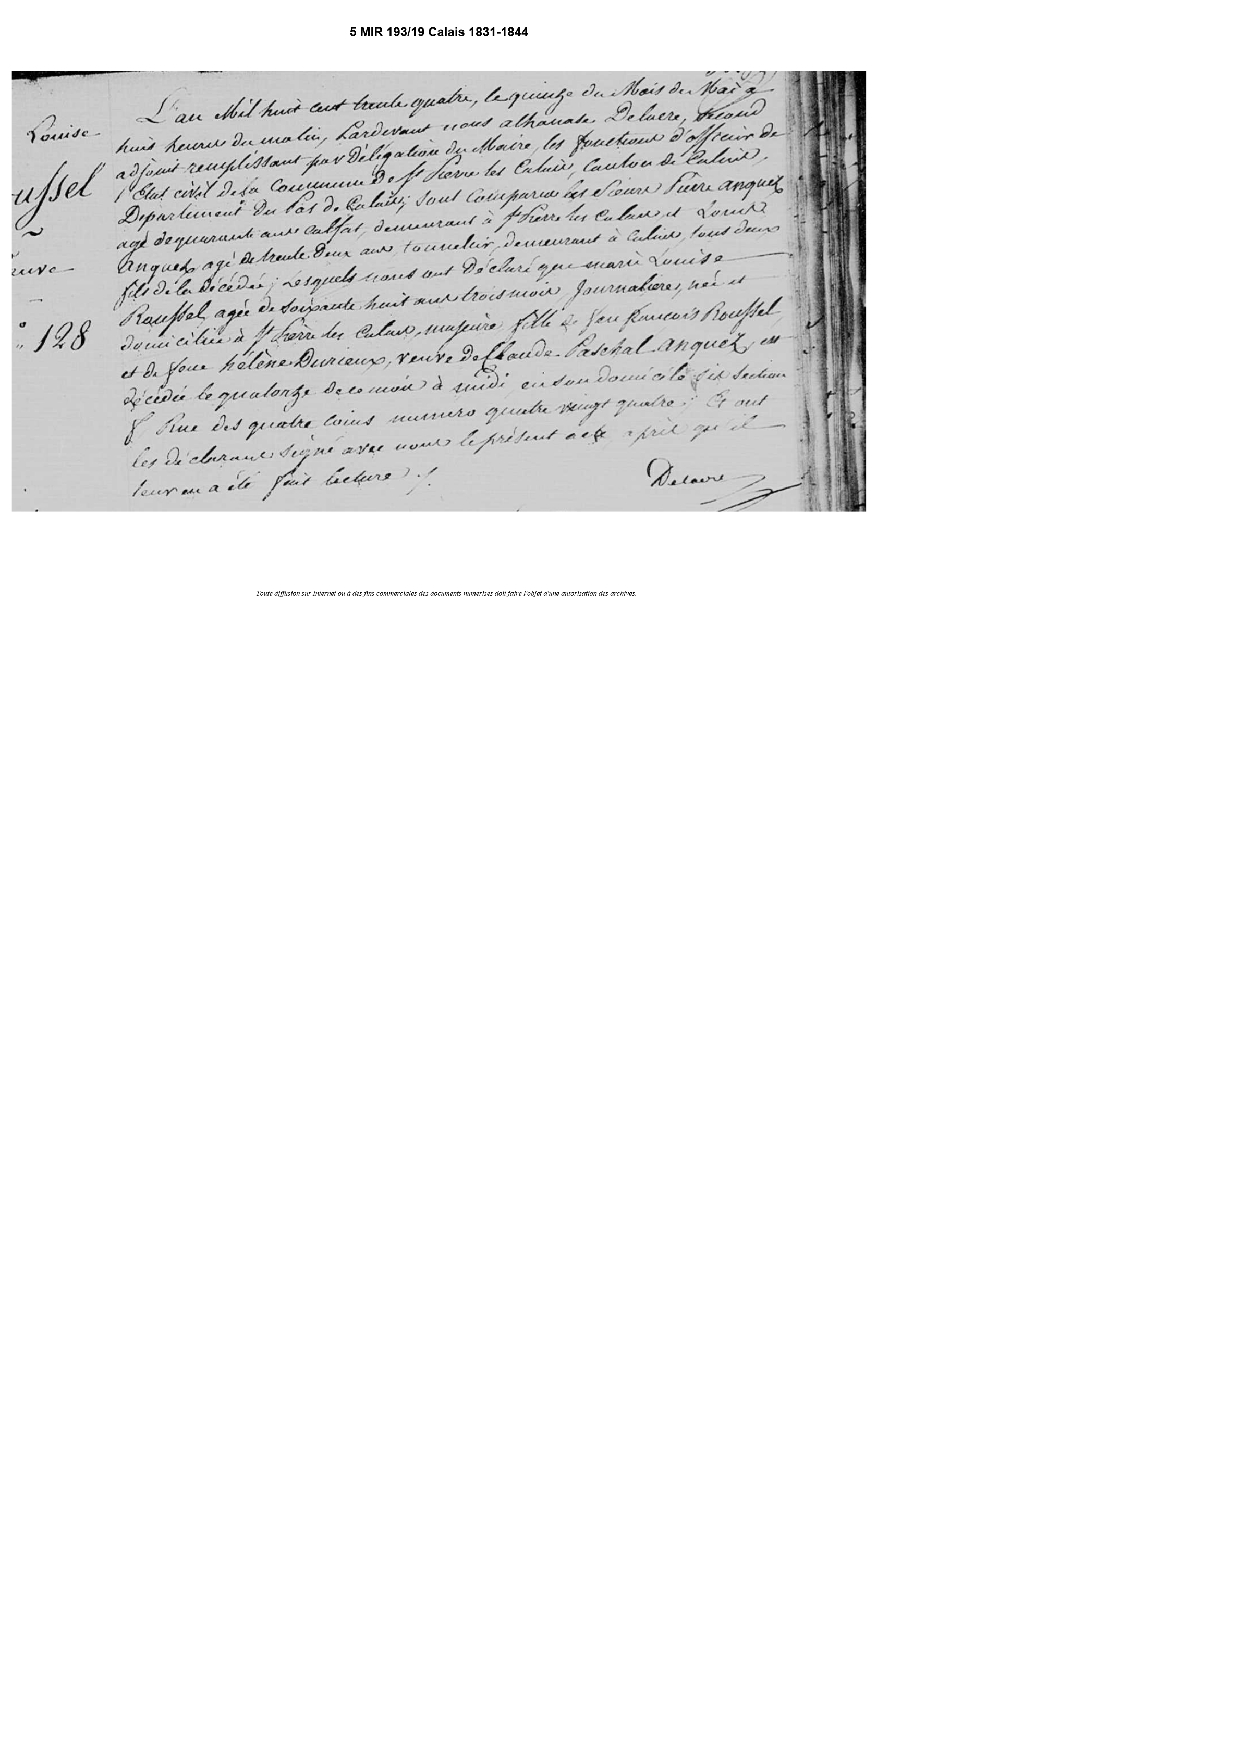 5 MIR 193/19 Calais 1831-1844
L'an Mil huit cent trente quatre, le quinze du Mois de Mai à
Louise
huit heures du matin, Pardevant nous athanase Delaere, second
adjoint remplissant par Délégation du Maire, les fonctions d'officier de
l'Etat civil de la Commune de St Pierre les Calais, Canton de Calais,
ussel
Département du Pas de Calais; sont comparus les Sieurs Pierre anquez
agé de quarante ans calfat, demeurant à St Pierre les Calais et Louis
anquez agé de trente deux ans, tonnelier, demeurant à Calais, tous deux
euve
fils de la décédée; Lesquels nous ont Déclaré que marie Louise
Roussel, agée de soixante huit ans trois mois, Journalière, née et
° 128
domiciliée à St Pierre les Calais, majeure fille de feu françois Roussel
et de feue hélène Durieux, veuve de Claude Paschal anquez, est
décédée le quatorze de ce mois à midi, en son domicile sis section
f Rue des quatre coins numero quatre vingt quatre; Et ont
les déclarans signé avec nous le présent acte après qu'il
leur en a été fait lecture ./.
Delaere
Toute diffusion sur Internet ou à des fins commerciales des documents numérisés doit faire l'objet d'une autorisation des archives.